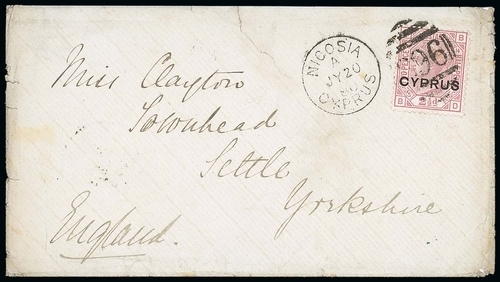 NICOSIA
A
JY 20
80
CYPRUS
961
CYPRUS
B
B D
Miss Clayton
Townhead
Settle
Yorkshire
England.